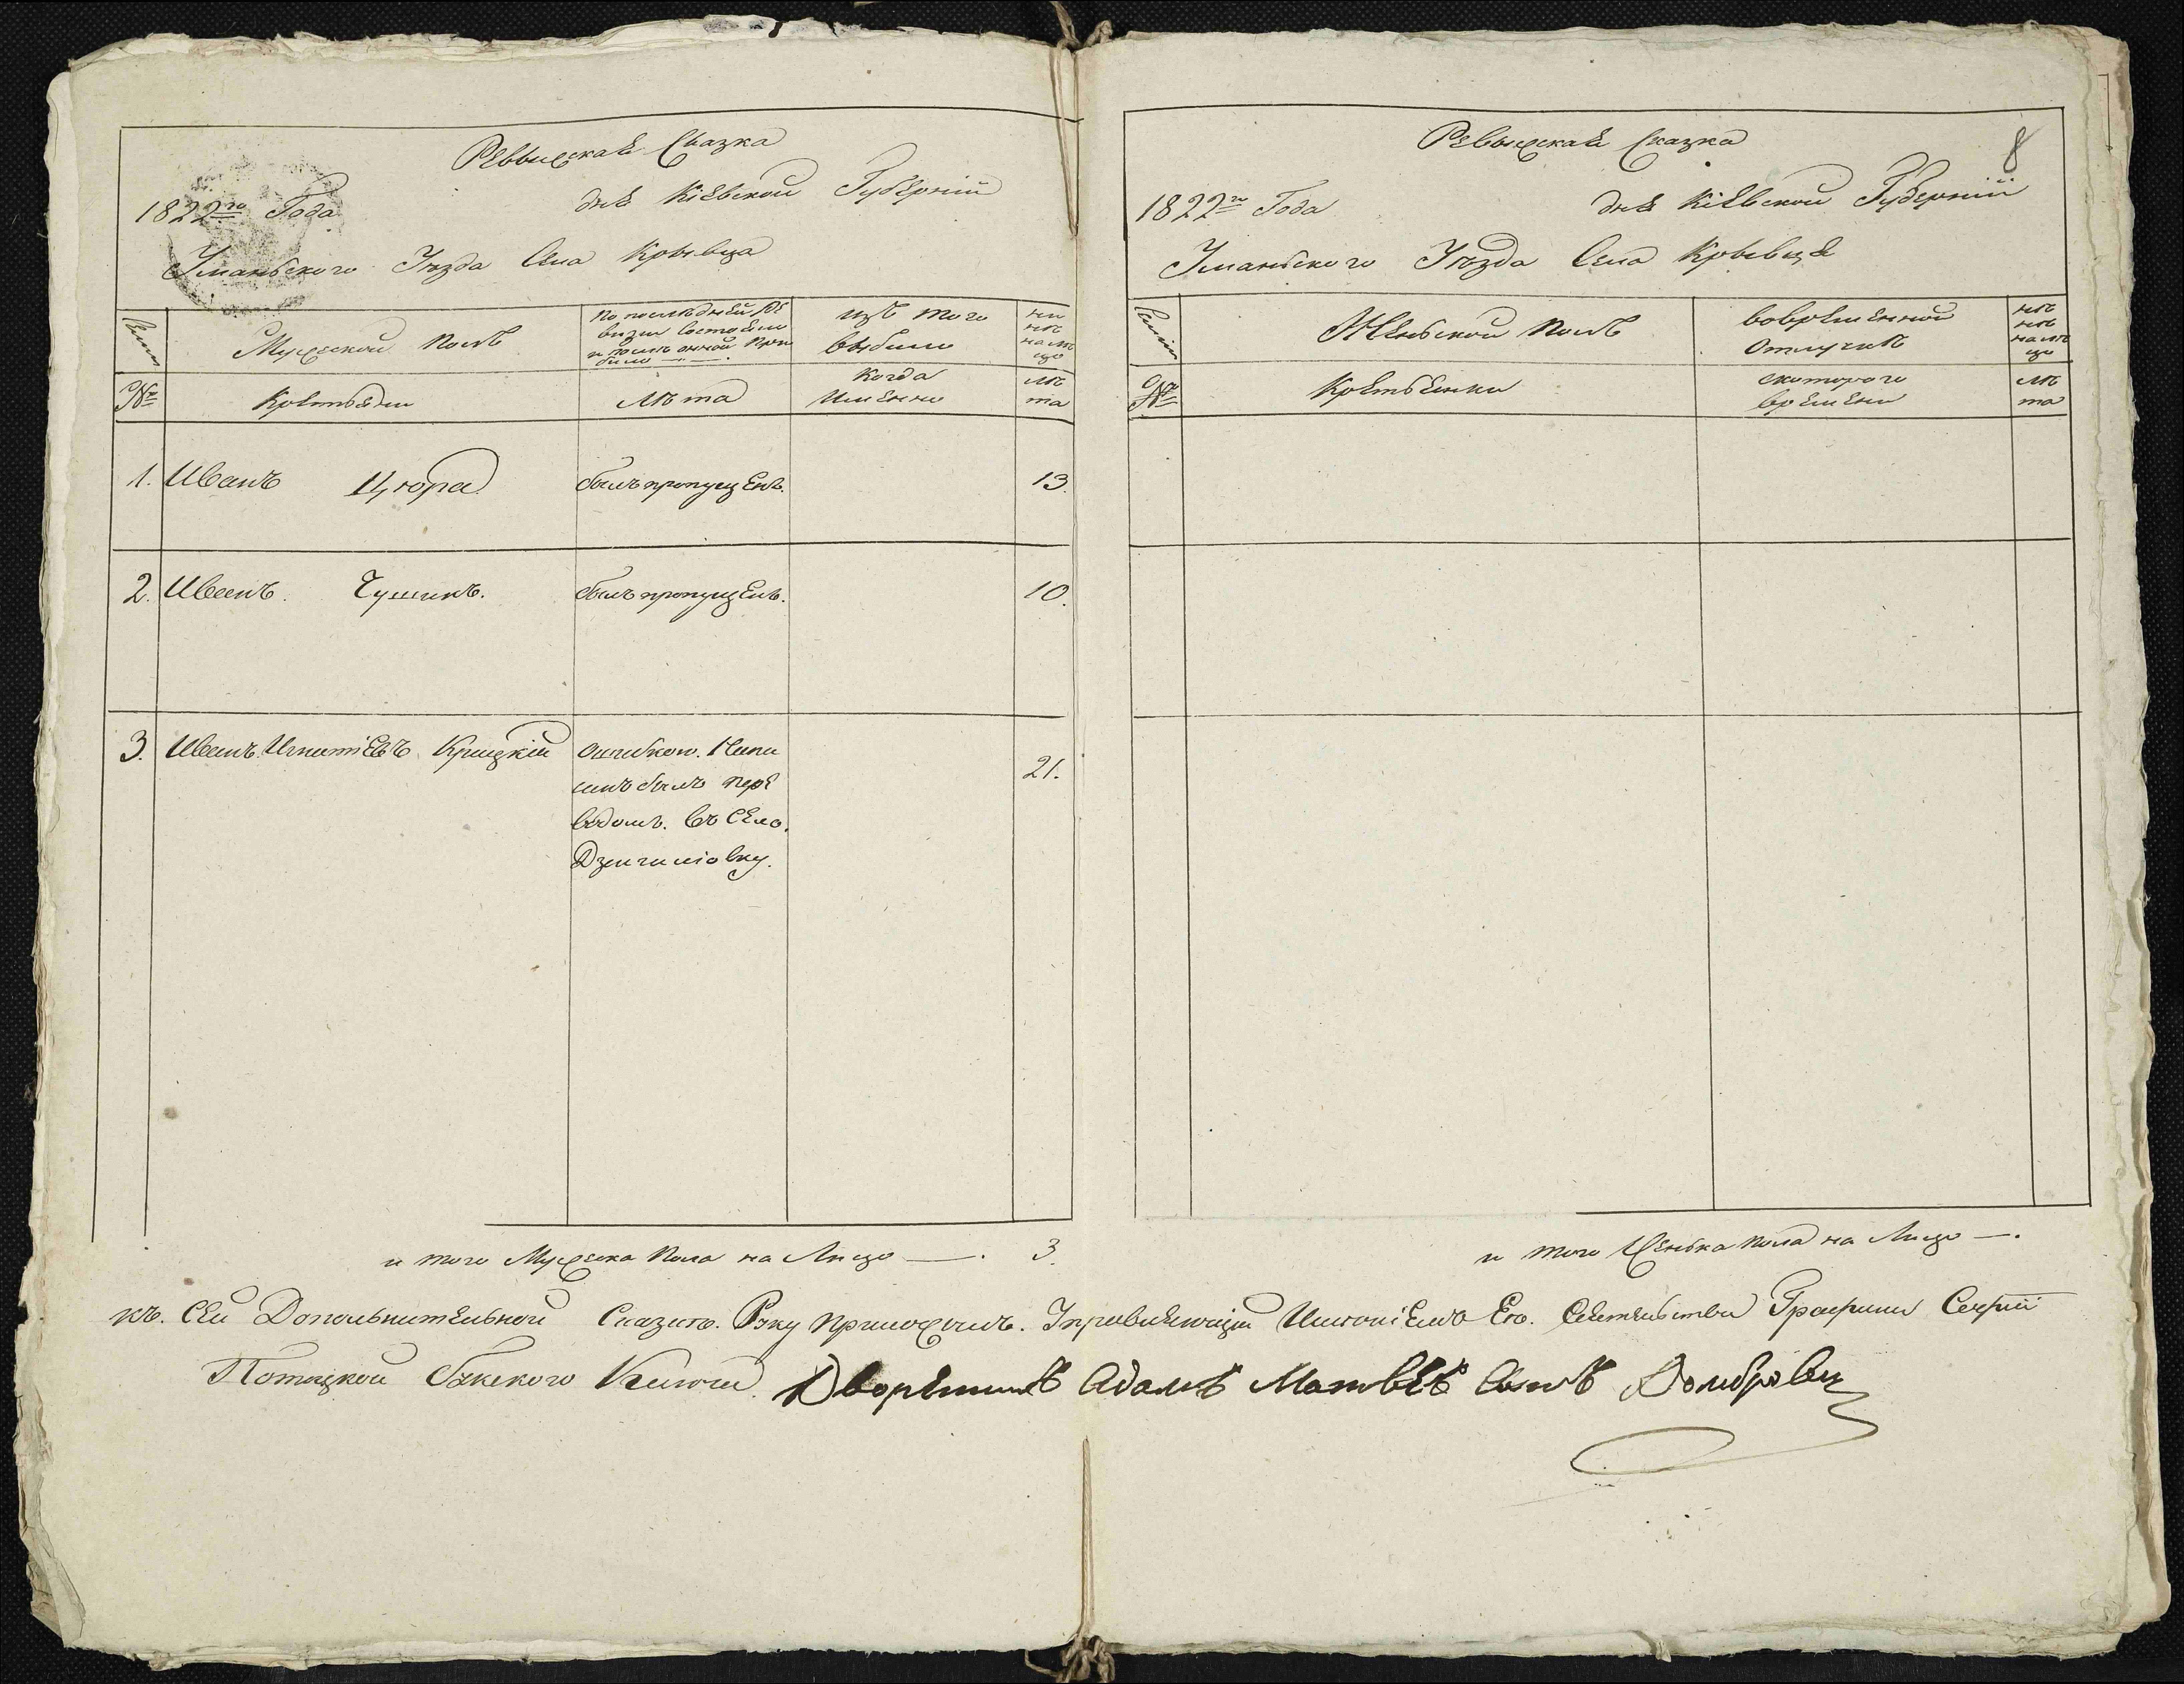 Ревыжская Сказка
1822го Года дня Кіевской Губерніи
Уманьского Уезда Села Крывца
Семьи
Мужеской полъ
По последней ре
визіи состояло
и после оной при
было
изъ того
выбыло
ны
не
на ли
цо
№
Крестьяни
Лета
Когда
Именно
ле
та
1. Иванъ Цюра былъ пропущенъ. 13.
2. Иванъ. Чушикъ. былъ пропущенъ. 10.
3. Иванъ Игнатіевъ Крицкій ошибкою. Напи
санъ былъ пере 21.
водомъ. въ Село.
Дзенгиловку.
и того Мужеска пола на Лицо —. 3.
8
Ревыжская Сказка
1822го Года дня Кіевской Губерніи
Уманьского Уезда Села Крывця
Семьи
Женьской полъ
вовременной
Отлучке
не
не
на ли
цо
№
Крестьянки
скоторого
времени
ле
та
и того Женьска пола на Лицо —.
къ. Сей Дополнительной Сказке. Руку приложилъ. Управляющій Именіемъ Ео. Сіятельства Графини Софіи
Потоцкой Бужского Ключа Дворянинъ Адамъ Матвевъ Сынъ Домбровски